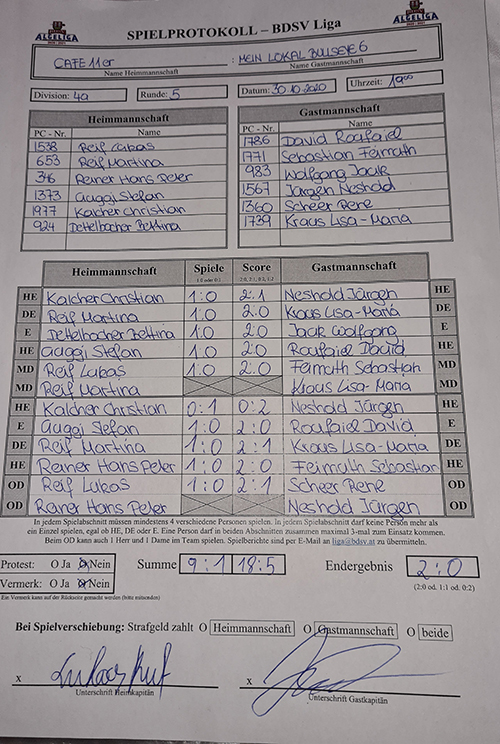 ALGELIGA
ALGELIGA
SPIELPROTOKOLL – BDSV Liga
CAFE 11er : MEIN LOKAL BULLSEYE 6
Name Heimmannschaft Name Gastmannschaft
Division: 4a Runde: 5 Datum: 30.10.2020 Uhrzeit: 19⁰⁰
Heimmannschaft
PC - Nr. Name
1538 Reif Lukas
653 Reif Martina
346 Reiner Hans Peter
1373 Auggi Stefan
1977 Kalcher Christian
924 Dettelbacher Bettina
Gastmannschaft
PC - Nr. Name
1786 David Roufaiel
1771 Sebastian Feimuth
983 Wolfgang Jauk
1567 Jürgen Neshold
1360 Scheer Rene
1739 Kraus Lisa-Maria
Heimmannschaft Spiele Score Gastmannschaft
1:0 oder 0:1 2:0, 2:1, 0:2, 1:2
HE Kalcher Christian 1:0 2:1 Neshold Jürgen HE
DE Reif Martina 1:0 2:0 Kraus Lisa-Maria DE
E Dettelbacher Bettina 1:0 2:0 Jauk Wolfgang E
HE Auggi Stefan 1:0 2:0 Roufaiel David HE
MD Reif Lukas 1:0 2:0 Feimuth Sebastian MD
MD Reif Martina Kraus Lisa-Maria MD
HE Kalcher Christian 0:1 0:2 Neshold Jürgen HE
E Auggi Stefan 1:0 2:0 Roufaiel David E
DE Reif Martina 1:0 2:1 Kraus Lisa-Maria DE
HE Reiner Hans Peter 1:0 2:0 Feimuth Sebastian HE
OD Reif Lukas 1:0 2:1 Scheer Rene OD
OD Reiner Hans Peter Neshold Jürgen OD
In jedem Spielabschnitt müssen mindestens 4 verschiedene Personen spielen. In jedem Spielabschnitt darf keine Person mehr als
ein Einzel spielen, egal ob HE, DE oder E. Eine Person darf in beiden Abschnitten zusammen maximal 3-mal zum Einsatz kommen.
Beim OD kann auch 1 Herr und 1 Dame im Team spielen. Spielberichte sind per E-Mail an liga@bdsv.at zu übermitteln.
Protest: O Ja O Nein Summe 9:1 18:5 Endergebnis 2:0
Vermerk: O Ja O Nein (2:0 od. 1:1 od. 0:2)
Ein Vermerk kann auf der Rückseite gemacht werden (bitte mitsenden)
Bei Spielverschiebung: Strafgeld zahlt O Heimmannschaft O Gastmannschaft O beide
x x
Unterschrift Heimkapitän Unterschrift Gastkapitän